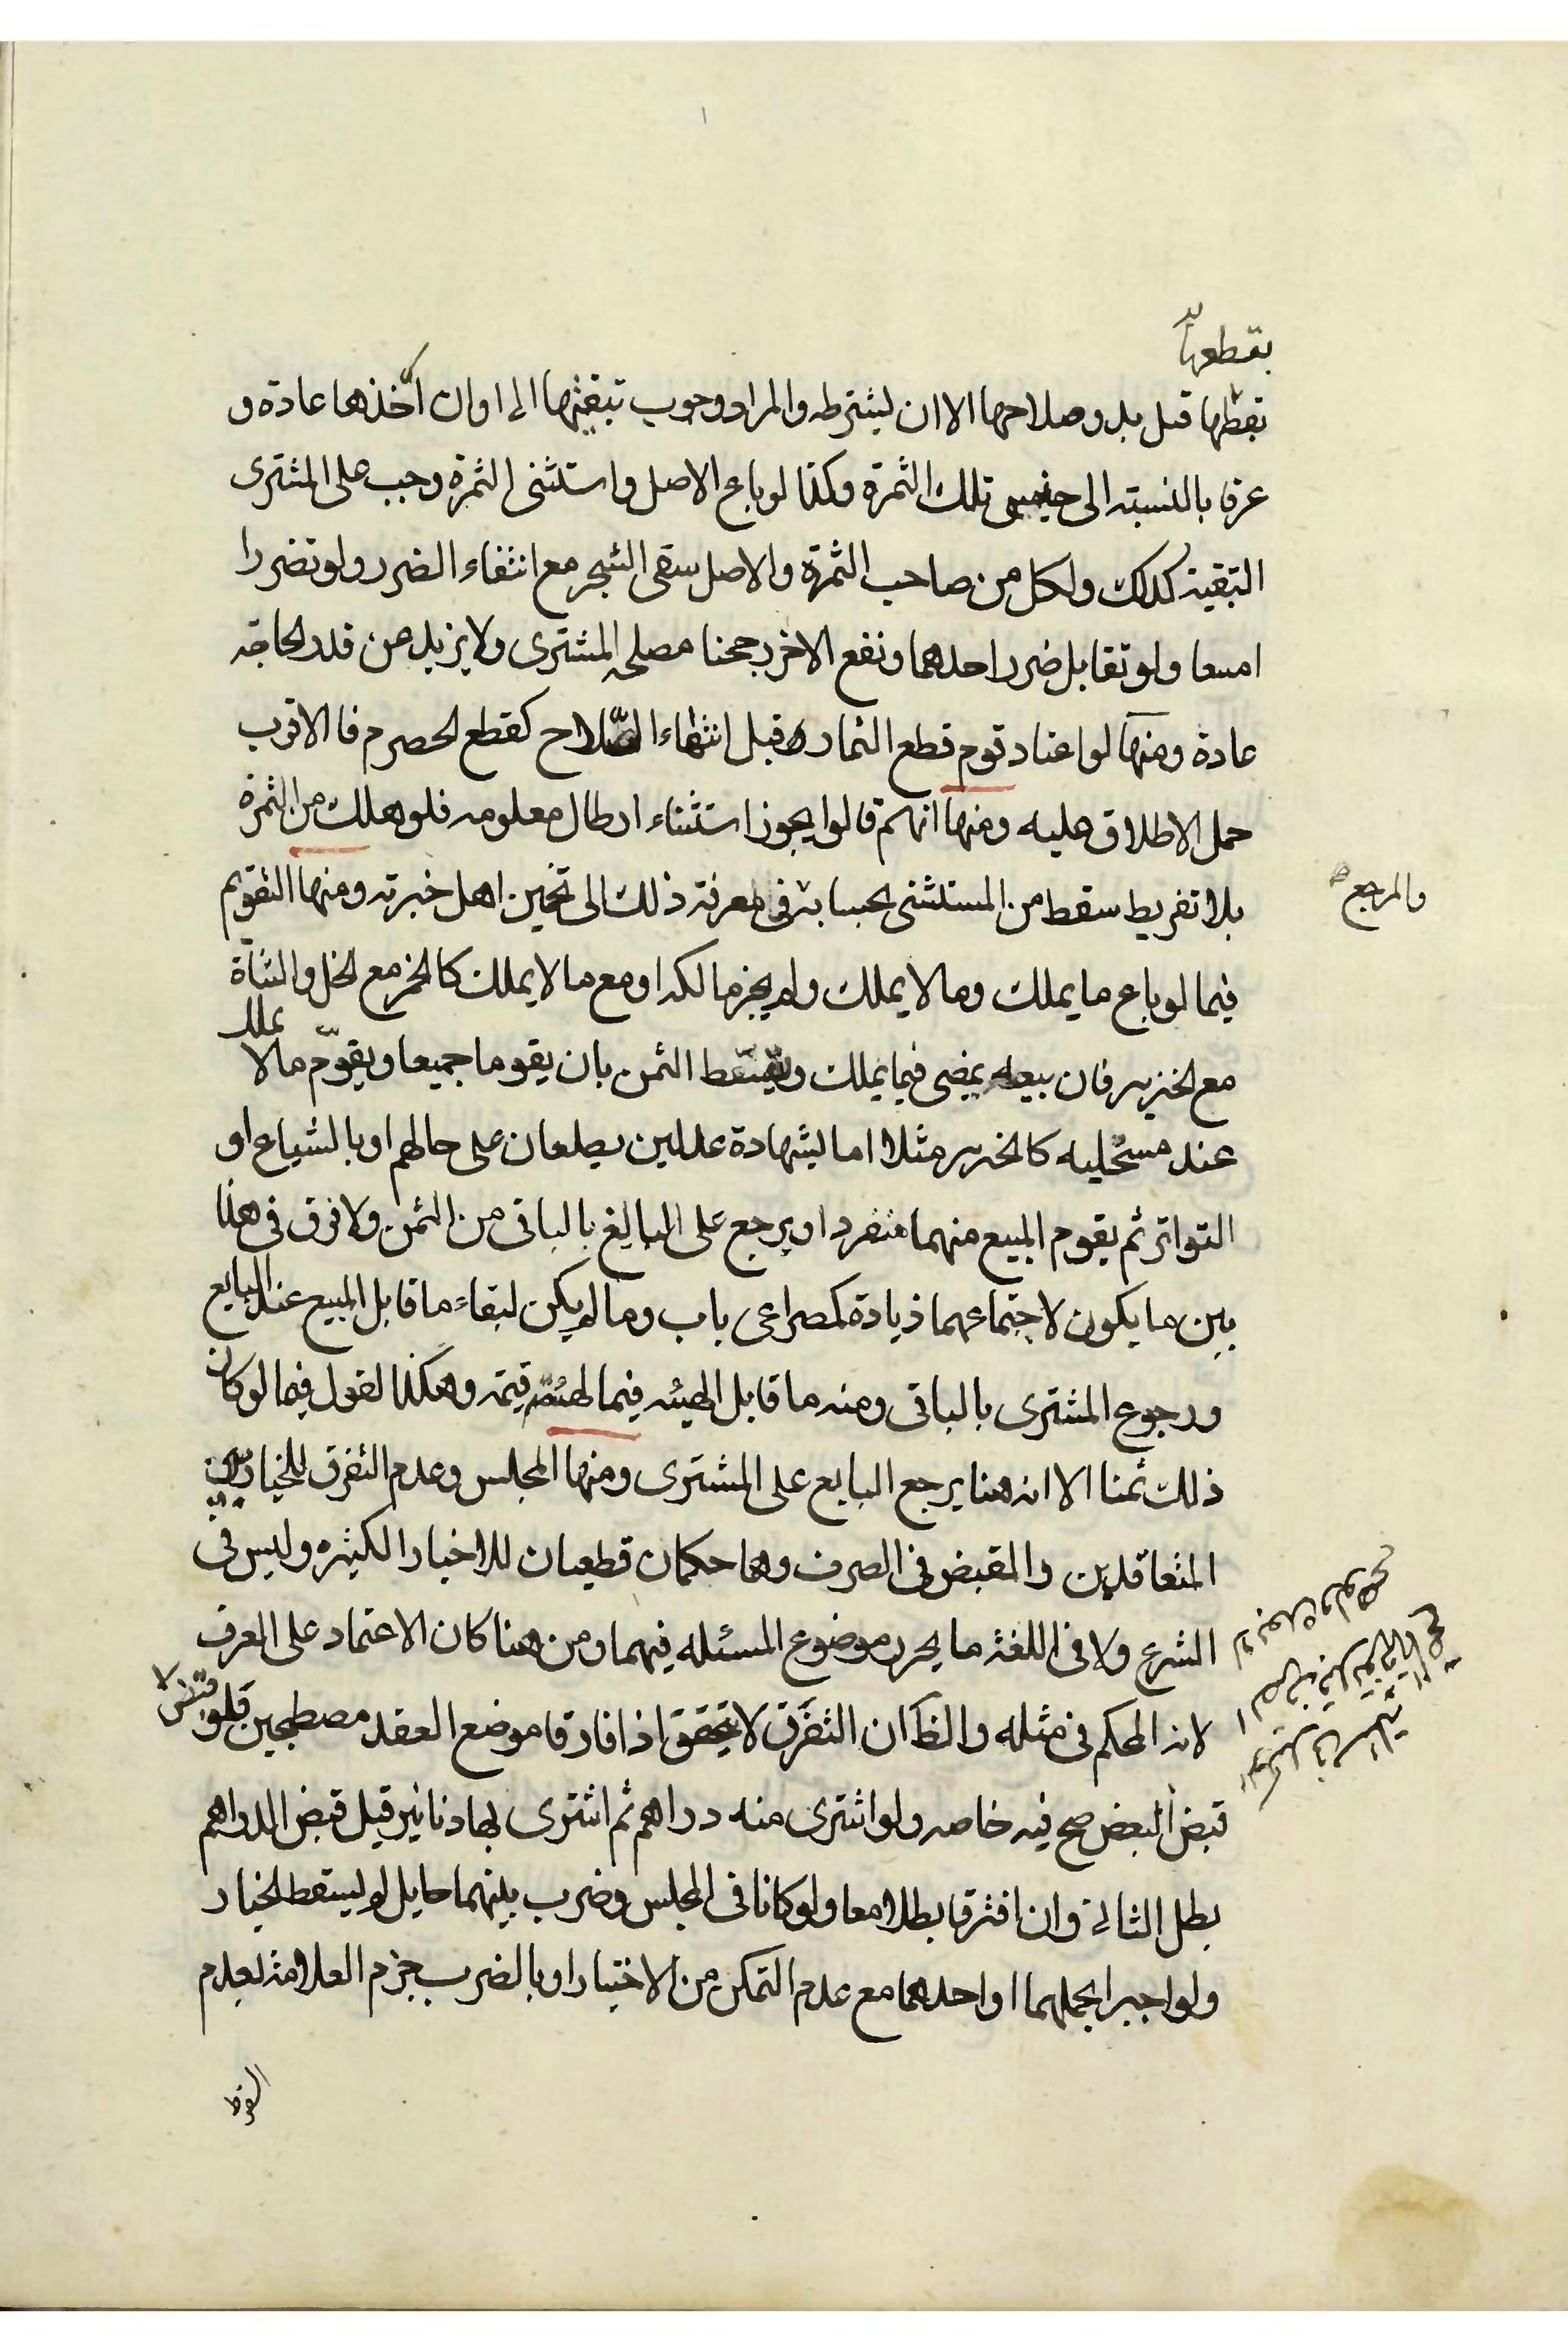 بقطعها
بقطعها قبل بدو صلاحها الا ان يشترطه والمراد وجوب تبقيتها الى اوان اخذها عادة و
عرفا بالنسبته الى جنس تلك الثمرة وكذا لو باع الاصل واستثنى الثمرة وجب على المشترى
التبقية كذلك ولكل من صاحب الثمرة والاصل سقى الشجر مع انتفاء الضرر ولو تضررا
امنعا ولو تقابل ضرر احدهما ونفع الاخر رجحنا مصلحه المشترى ولا يزيد من قدر الحاجه
عادة ومنها لو اعتاد قوم قطع الثماره قبل انتهاء الصلاح كقطع الحصرم فالاقرب
حمل الاطلاق عليه ومنها انهم قالوا يجوز استثناء ارطال معلومه فلو هلك من الثمرة
بلا تفريط سقط من المستثنى بحسابه فى معرفة ذلك الى تخمين اهل خبرته ومنها التقويم
والمرجع
فيما لو باع ما يملك وما لا يملك ولم يجز مالكه او مع ما لا يملك كالخمر مع الخل والشاة
مع الخنزير فان بيعه يمضى فيما يملك ويقسط الثمن بان يقوما جميعا ويقوم ما لا يملك
عند مستحليه كالخنزير مثلا اما بشهادة عدلين يطلعان على حالهم او بالشياع او
التواتر ثم يقوم المبيع منهما منفردا ويرجع على البايع بالباقى من الثمن ولا فرق فى هذا
بين ما يكون لاجتماعهما زيادة كمصراعى باب وما لم يكن لبقاء ما قابل المبيع عند البايع
ورجوع المشترى بالباقى ومنه ما قابل الهيئه فيما لهيئته قيمة وهكذا القول فيما لو كان
ذلك ثمنا الا انه هنا يرجع البايع على المشترى ومنها المجلس وعدم التفرق للخيار بين
المتعاقدين والقبض فى الصرف وهما حكمان قطعيان للاخبار الكثيره وليس فى
الشرع ولا فى اللغة ما يحرر موضوع المسئله فيهما ومن هنا كان الاعتماد على العرف
لانه المحكم فى مثله والظ ان التفرق لا يتحقق اذا فارقا موضع العقد مصطحبين فلو قبض
قبض البعض صح فيه خاصه ولو اشترى منه دراهم ثم اشترى بها دنانير قبل قبض الدراهم
بطل الثانى وان افترقا بطلا معا ولو كانا فى المجلس وضرب بينهما حايل لو ليسقط الخيار
ولو اجبر ابحملهما او احدهما مع عدم التمكن من الاختيار او بالضرب جزم العلامة لعدم